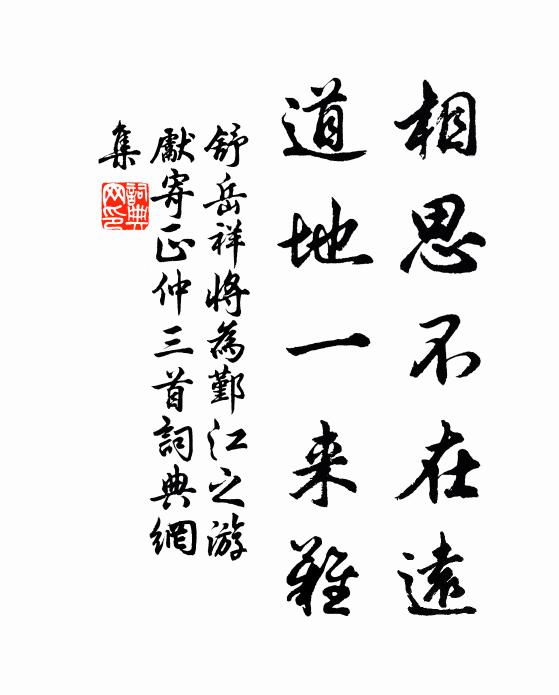 相思不在遠
道地一来難
舒岳祥將為鄞江之游
獻寄正仲三首詞典網
集
詞典
网印